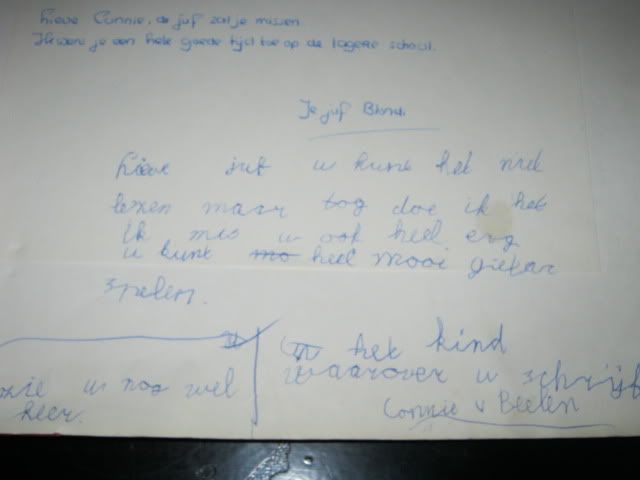 Lieve Connie, de juf zal je missen.
Ik wens je een hele goede tijd toe op de lagere school.
Je juf
Lieve juf u kunt het niet
lezen maar tog doe ik het
Ik mis u ook heel erg
u kunt mo heel mooi gietar
spelen.
u nog wel
keer.
het kind
waarover u schrijft
Connie v Beelen